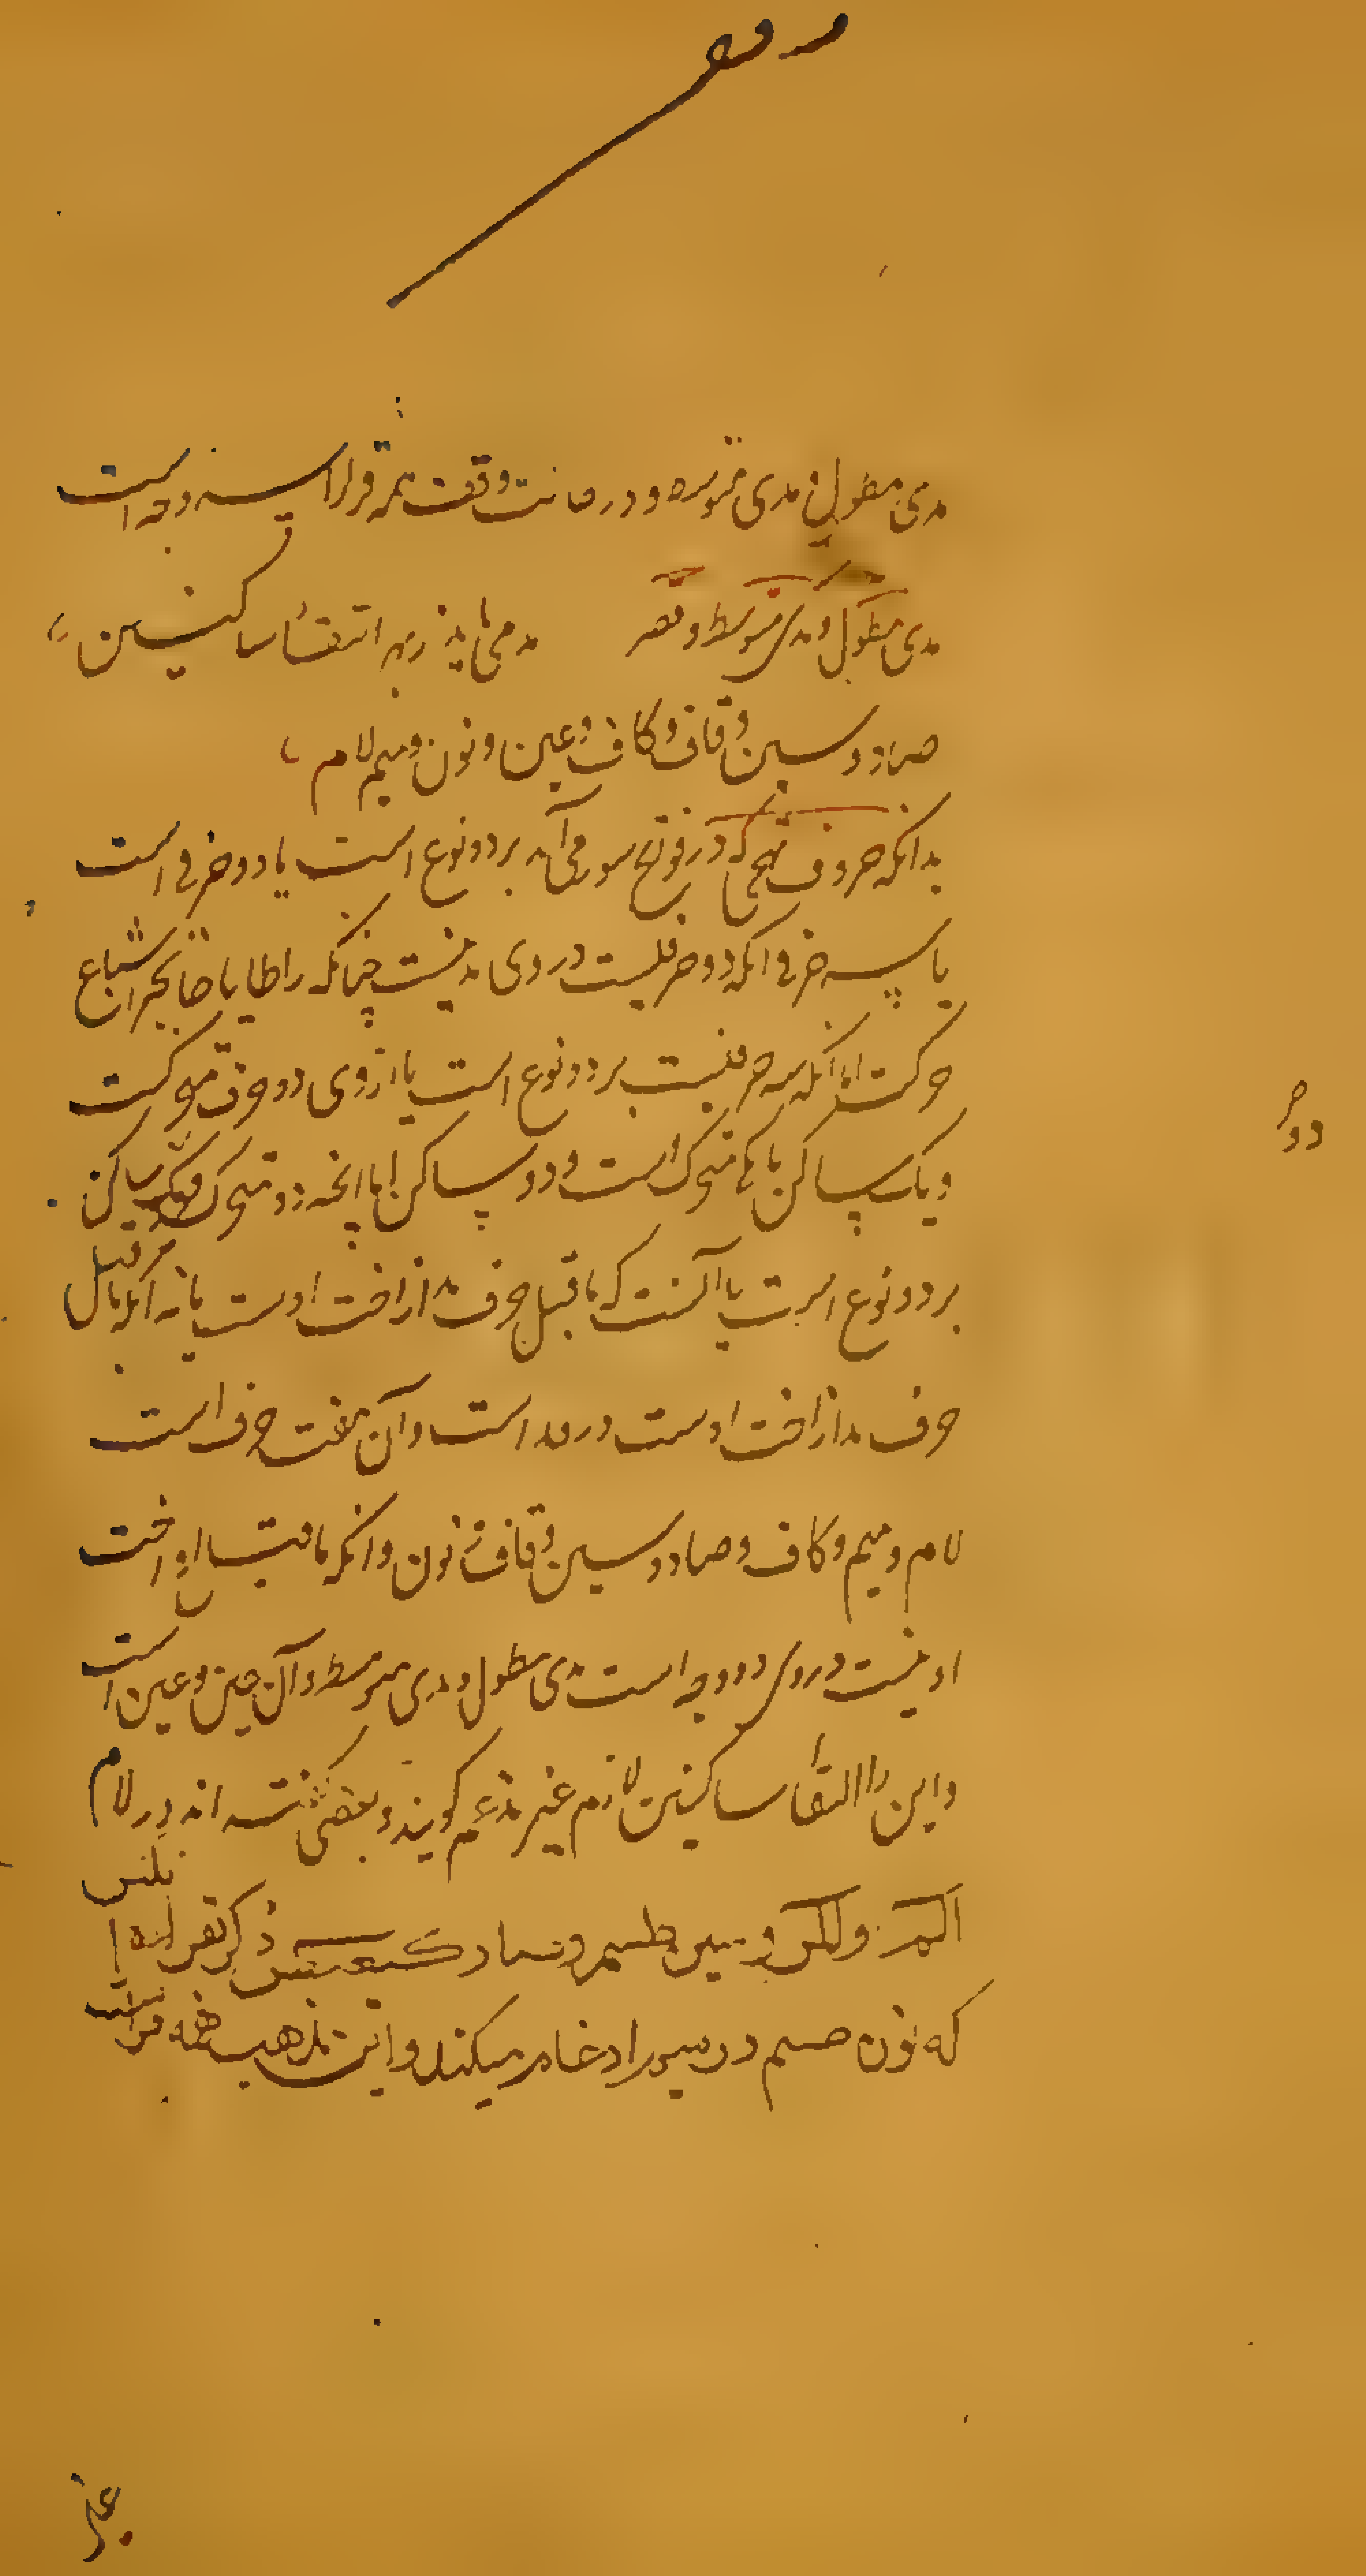 مدی مطول و مدی متوسط و در حالت وقف همه قرا را سه وجه است
مدی مطول و مدی متوسط و قصر مد می‌باید از بهر التقاء ساکنین
صاد و سین و قاف و کاف و عین و نون و میم لام
بدانکه حروف تهجی که در فواتح سور می‌آید بر دو نوع است یا دو حرفی است
یا سه حرفی آنکه دو حرفیست در وی مد نیست چنانکه را طا یا حا بجز اشباع
حرکت اما آنکه سه حرفیست بر دو نوع است یا از وی دو حرف متحرکست
و یک ساکن یا یک متحرک است و دو ساکن اما آنچه دو متحرک و یک ساکن
دو حر
بر دو نوع است یا آنست که ما قبل حرف مد از اخت اوست یا نه آنکه ما قبل
حرف مد از اخت اوست در مد است و آن هفت حرف است
لام و میم و کاف و صاد و سین و قاف و نون و آنکه ما قبل او اخت
او نیست در وی دو وجه است مدی مطول و مدی متوسط و آن عین و عین است
و این را التقاء ساکنین لازم غیر مدغم گویند و بعضی گفته اند در لام
الم و سین طسم و صاد کهیعص ذکر
که نون در میم را ادغام میکند و این مذهب همه قراست
غیر